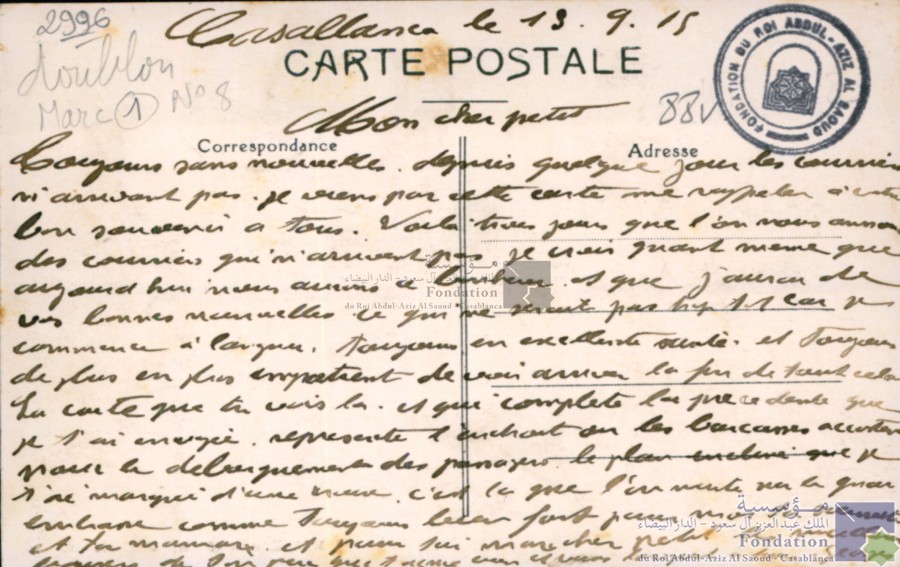 2996
Casablanca le 13.9.15
doublon
Marc 1 N° 8
CARTE POSTALE
FONDATION DU ROI ABDUL-AZIZ AL SAOUD
88v
Mon cher petit
Correspondance
Adresse
Toujours sans nouvelle. depuis quelque jour les courriers
n'arrivent pas. je viens par cette carte me rappeler à votre
bon souvenir a tous. Voila trois jours que l'on nous annonce
des courriers qui n'arrivent pas. je crois quant meme que
aujourd'hui nous aurons et que j'aurai de
vos bonnes nouvelles. ce qui ne serait pas trop tot car je
commence à languir. Toujours en excellente santé. et Toujours
de plus en plus impatient de voir arriver la fin de tout cela
La carte que tu vois la. et qui complete la precedente que
je t'ai envoyée. represente l'endroit ou les barcasses accostent
pour le debarquement des passagers. le plan incliné que je
t'ai marqué d'une c'est la que l'on monte sur le quai
embrasse comme Toujours bien fort pour moi
et ta maman. et pour toi mon cher petit
مؤسسة
الملك عبد العزيز آل سعود - الدار البيضاء
Fondation
du Roi Abdul-Aziz Al Saoud - Casablanca
مؤسسة
الملك عبد العزيز آل سعود - الدار البيضاء
Fondation
du Roi Abdul-Aziz Al Saoud - Casablanca